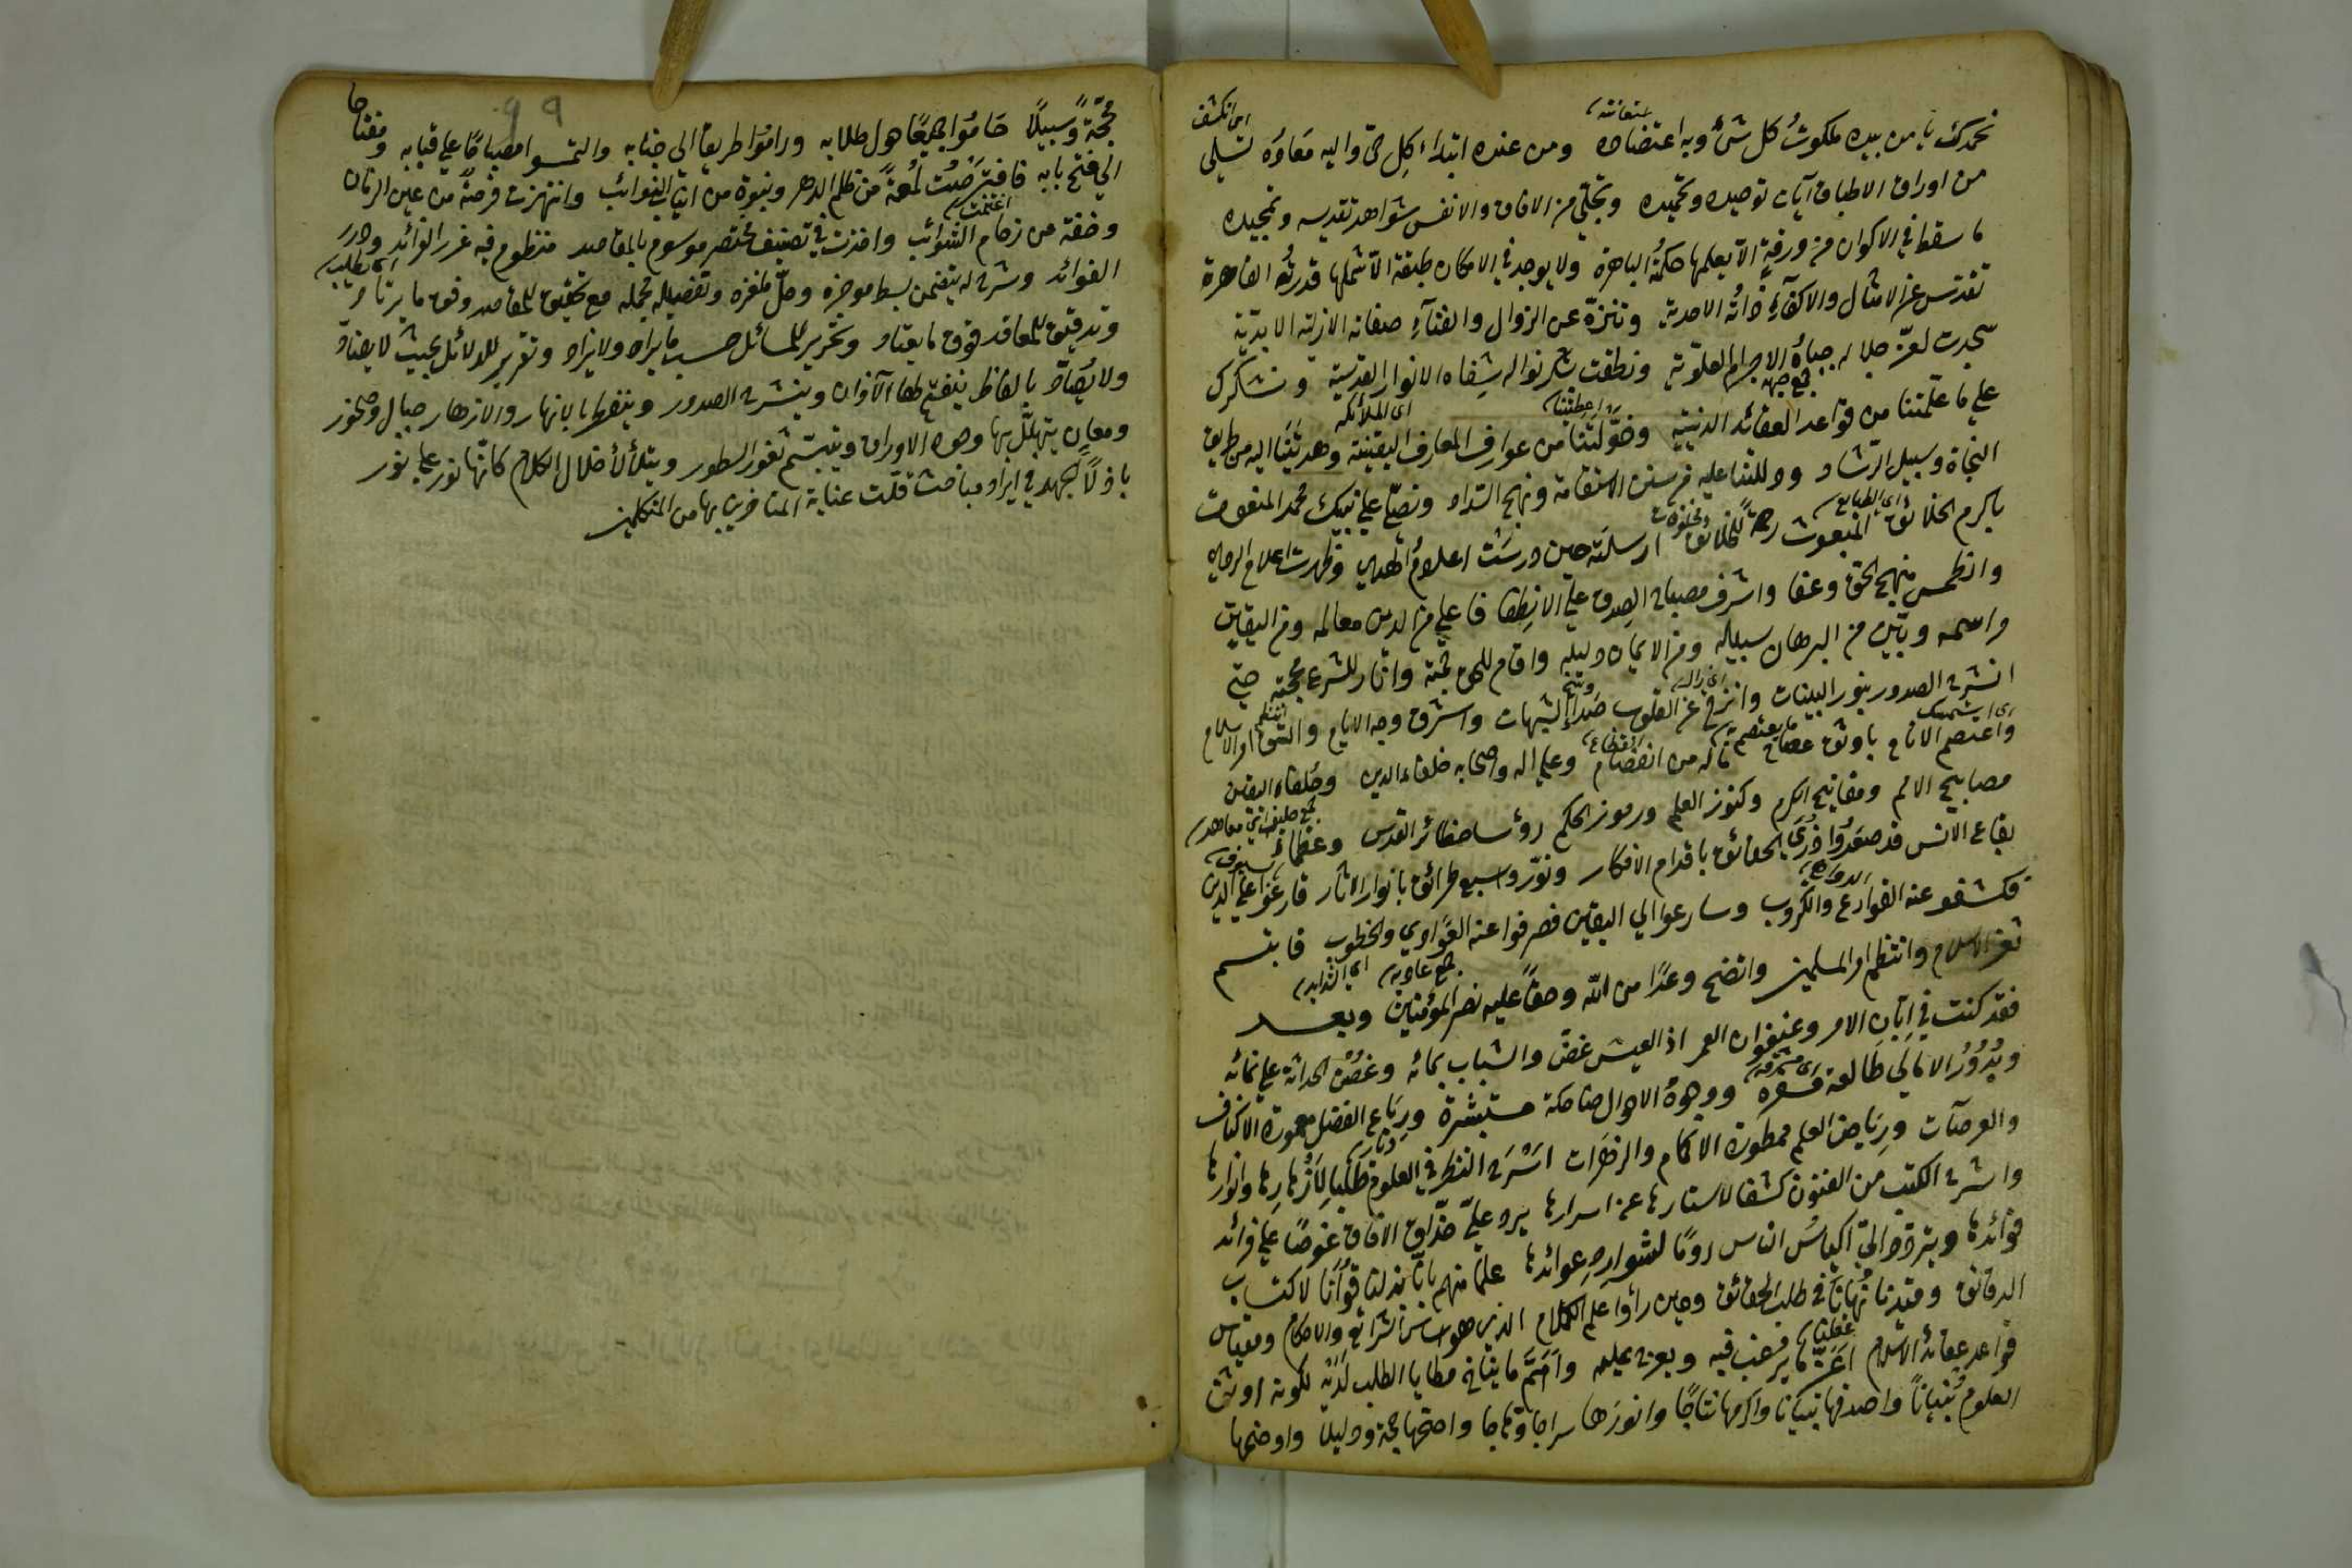 نحمدك يا من بيده ملكوت كل شئ وبه اعتضاده ومن عنده ابتداء كل حي واليه معاده تتلى
من اوراق الاطباق آيات توحيده وتحميده وتجلى من الافاق والانفس شواهد تقديسه وتمجيده
ما سقط في الاكوان من ورقة الا تعلمها حكمته الباهرة ولا يوجد في الامكان طبقة الا تشملها قدرته القاهرة
تقدس عن الامثال والاكفاء ذاته الاحدية وتنزه عن الزوال والفناء صفاته الازلية الابدية
سجدت لعزة جلاله جباه الاجرام العلوية ونطقت بشكر نواله شفاه الانوار القدسية ونشكرك
على ما علمتنا من قواعد العقائد الدينية وخولتنا من عوارف المعارف اليقينية وهديتنا اليه من طريق
النجاة وسبيل الرشاد ودللتنا عليه من سنن الاستقامة ونهج السداد ونصلي على نبيك محمد المنعوت
باكرم الخلائق المبعوث رحمة للخلائق ارسلته حين درست اعلام الهدى وظهرت اعلام الردى
وانطمس منهج الحق وعفا واشرف مصباح الصدق على الانطفا فاعلى من الدين معالمه ومن اليقين
مراسمه وبين من البرهان سبيله ومن الايمان دليله واقام للحق حجته وانار للشرع محجته حتى
انشرح الصدور بنور البينات وانزاح عن القلوب صدأ الشبهات واشرق وجه الايام واتسق امر الاسلام
واعتصم الانام باوثق عصام ماله من انفصام وعلى اله واصحابه خلفاء الدين وحلفاء اليقين
مصابيح الامم ومفاتيح الكرم وكنوز العلم ورموز الحكم رؤساء حظائر القدس وعظماء
بقاع الانس قد صعدوا ذرى الحقائق باقدام الافكار ونوروا سبع طرائق بانوار الاثار قارعوا على الدين
فكشفوا عنه القوارع والكروب وسارعوا الى اليقين فصرفوا عنه العوادي والخطوب فابتسم
ثغر الاسلام وانتظم امر المسلمين واتضح وعدا من الله وحقا عليه نصر المؤمنين وبعد
فقد كنت في ابان الامر وعنفوان العمر اذ العيش غض والشباب بمائه وغصن الحداثة على نمائه
وبدور الامالي طالعة مسفرة ووجوه الاحوال ضاحكة مستبشرة ورباع الفضل معمورة الاكناف
والعرصات ورياض العلم ممطورة الاكمام والزهرات اسرح النظر في العلوم طلبا لازهارها وانوارها
واشرح الكتب من الفنون كشفا لاستارها عن اسرارها يرد علي حذاق الافاق غوصا على فرائد
فوائدها ويتردد الي اكياس الناس روما لشوارد عوائدها علما منهم بانا بذلنا قوانا لاكتساب
الدقائق وقيدنا نهانا في طلب الحقائق وحين رأوا علم الكلام الذي هو اساس الشرائع والاحكام ومقياس
قواعد عقائد الاسلام اعز ما يرغب فيه ويعرج عليه واهم ما يناخ مطايا الطلب لديه لكونه اوثق
العلوم بنيانا واصدقها تبيانا واكرمها نتاجا وانورها سراجا وهاجا واصحها حجة ودليلا واوضحها
محجة وسبيلا حاموا جميعا حول طلابه وراموا طريقا الى جنابه والتمسوا مصباحا على قبابه ومفتاحا
الى فتح بابه فافترصت لمعة من ظلم الدهر ونبوة من انياب النوائب وانتهزت فرصة من عين الزمان
وخفة من زحام الشوائب واخذت في تصنيف مختصر موسوم بالمقاصد منظوم فيه غرر الفوائد ودرر
الفوائد وشرح له يتضمن بسط موجزه وحل ملغزه وتفصيل مجمله مع تحقيق للمقاصد وفق ما يرتاد
وتدقيق للمعاقد فوق ما يعتاد وتحرير للمسائل حسب ما يراد ولا يزاد وتقرير للدلائل بحيث لا يضاد
ولا يصاد بالفاظ ينفتح لها الآذان وينشرح الصدور وينفطر بالانهار والازهار جبال وصخور
ومعان يتهلل بها وجوه الاوراق ويتبسم ثغور السطور ويتلألأ خلال الكلام كانها نور على نور
باذلا للجهد في ايراد مباحث قلت عناية المتاخرين بها من المتكلمين